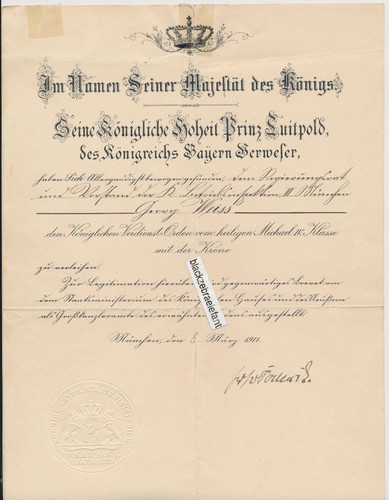 Im Namen Seiner Majestät des Königs.
Seine Königliche Hoheit Prinz Luitpold,
des Königreichs Bayern Verweser,
haben Sich Allergnädigst bewogen gefunden, dem Regierungsrat
und Vorstand der K. III München
Georg Weiss
den Königlichen Verdienst-Orden vom heiligen Michael IV. Klasse
mit der Krone
zu verleihen.
Zur Legitimation hierüber wird gegenwärtiges Dekret von
dem Staatsministerium des Königlichen Hauses und des Äußern
als Großkanzleramte des erwähnten Ordens ausgestellt.
München, den 8. März 1911.
blackzebraelefant